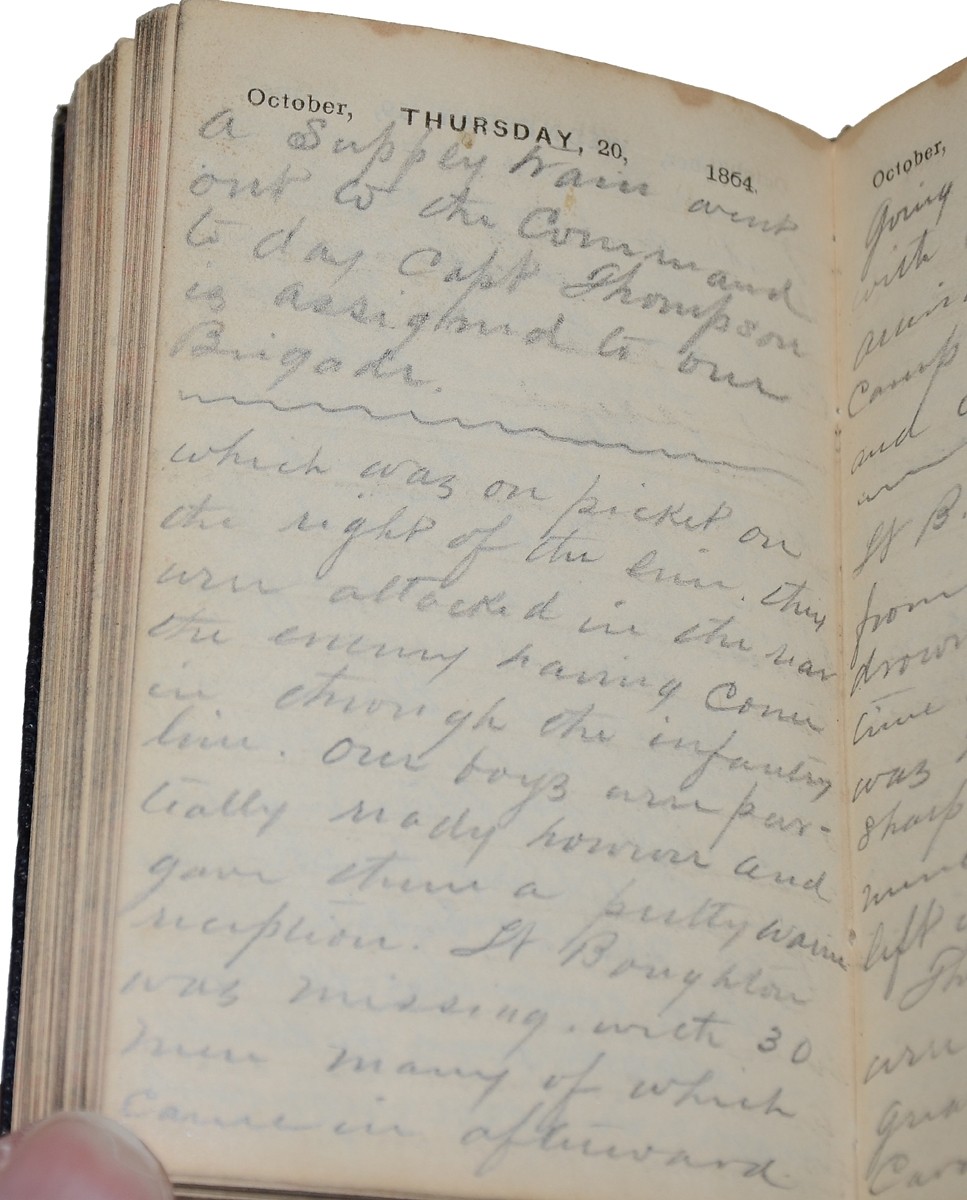 October, THURSDAY, 20, 1864.
A Supply train went
out to the Command
to day Capt Thompson
is assigned to our
Brigade.
which was on picket on
the right of the line. they
were attacked in the rear
the enemy having come
in through the infantry
line. Our boys were par-
tially ready however and
gave them a pretty warm
reception. Lt Boughton
was missing. with 30
men many of which
came in afterward.
October,
going
with
Camp
and
Lt B.
from
drown
time
was
sharp
left
were